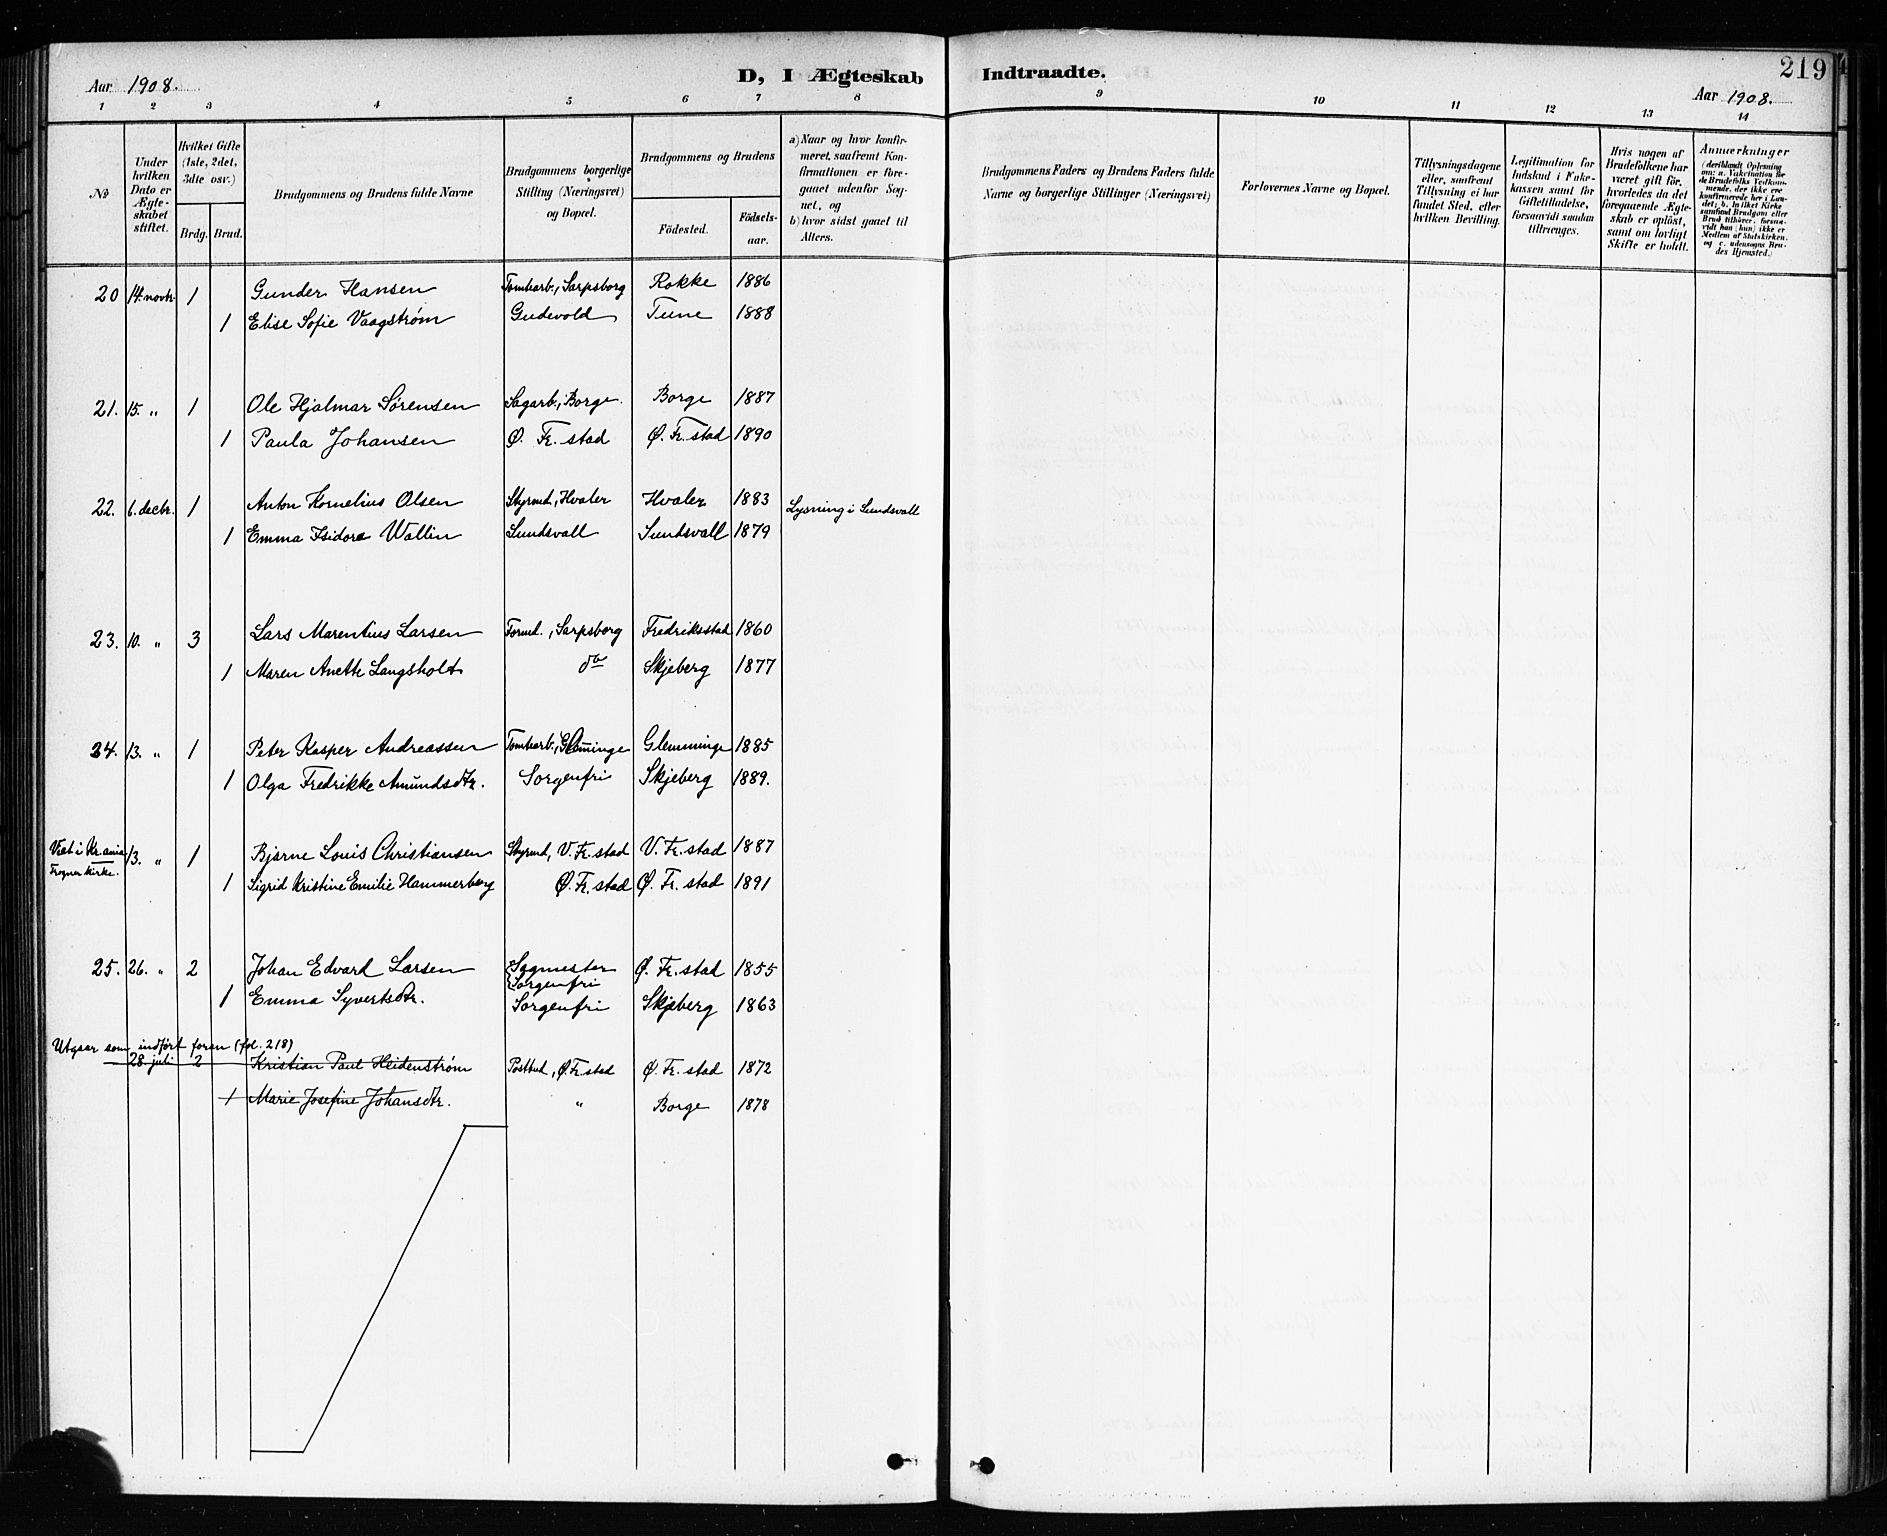 219
Aar 1908.
D, I Ægteskab Indtraadte.
Aar 1908.
1 2 3 4 5 6 7 8 9 10 11 12 13 14
No
Under hvilken Dato er Ægteskabet stiftet.
Hvilket Gifte (1ste, 2det, 3die osv.)
Brdg. Brud.
Brudgommens og Brudens fulde Navne
Brudgommens borgerlige Stilling (Næringsvei) og Bopæl.
Brudgommens og Brudens
Födested.
Födsels-aar.
a) Naar og hvor konfirmeret, saafremt Konfirmationen er foregaaet udenfor Sognet, og
b) hvor sidst gaaet til Alters.
Brudgommens Faders og Brudens Faders fulde Navne og borgerlige Stillinger (Næringsvei)
Forlovernes Navne og Bopæl.
Tillysningsdagene eller, saafremt Tillysning ei har fundet Sted, efter hvilken Bevilling.
Legitimation for Indskud i Enkekassen samt for Giftetilladelse, forsaavidt saadan tiltrænges.
Hvis nogen af Brudefolkene har været gift før, hvorledes da det foregaaende Ægteskab er oplöst, samt om lovligt Skifte er holdt.
Anmærkninger
20 14. novbr. 1 Gunder Hansen Tomtearb., Sarpsborg Rokke 1886
1 Elise Sofie Vaagstrøm Gudevold Tune 1888
21. 15. " 1 Ole Hjalmar Sørensen Sagarb., Borge. Borge 1887
1 Paula Johansen Ø. Fr. stad Ø. Fr. stad 1890
22. 6. decbr. 1 Anton Kornelius Olsen Styrmd., Hvaler Hvaler 1883 Lysning i Sundsvall
1 Emma Isidora Wallin Sundsvall Sundsvall 1879
23. 10. " 3 Lars Marentius Larsen Formd., Sarpsborg Fredriksstad 1860
1 Maren Anette Langsholt do Skjeberg 1877
24. 13. " 1 Peter Kasper Andreassen Tomtearb., Glemminge Glemminge 1885
1 Olga Fredrikke Amundsdtr. Sorgenfri Skjeberg 1889.
Viet i Kr.ania Frogner kirke. 13. " 1 Bjarne Louis Christiansen Styrmd, V. Fr. stad V. Fr. stad 1887
1 Sigrid Kristine Emilie Hammerberg Ø. Fr. stad Ø. Fr. stad 1891
25. 26. " 2 Johan Edvard Larsen Sagmester Ø. Fr. stad 1855
Sorgenfri
1 Emma Syvertsdtr. Sorgenfri Skjeberg 1863
Utgaar som indført foran (fol. 218)
28 juli 2 Kristian Paul Heidenstrøm Postbud, Ø. Fr. stad Ø. Fr. stad 1872
1 Marie Josefine Johansdtr. " Borge 1878